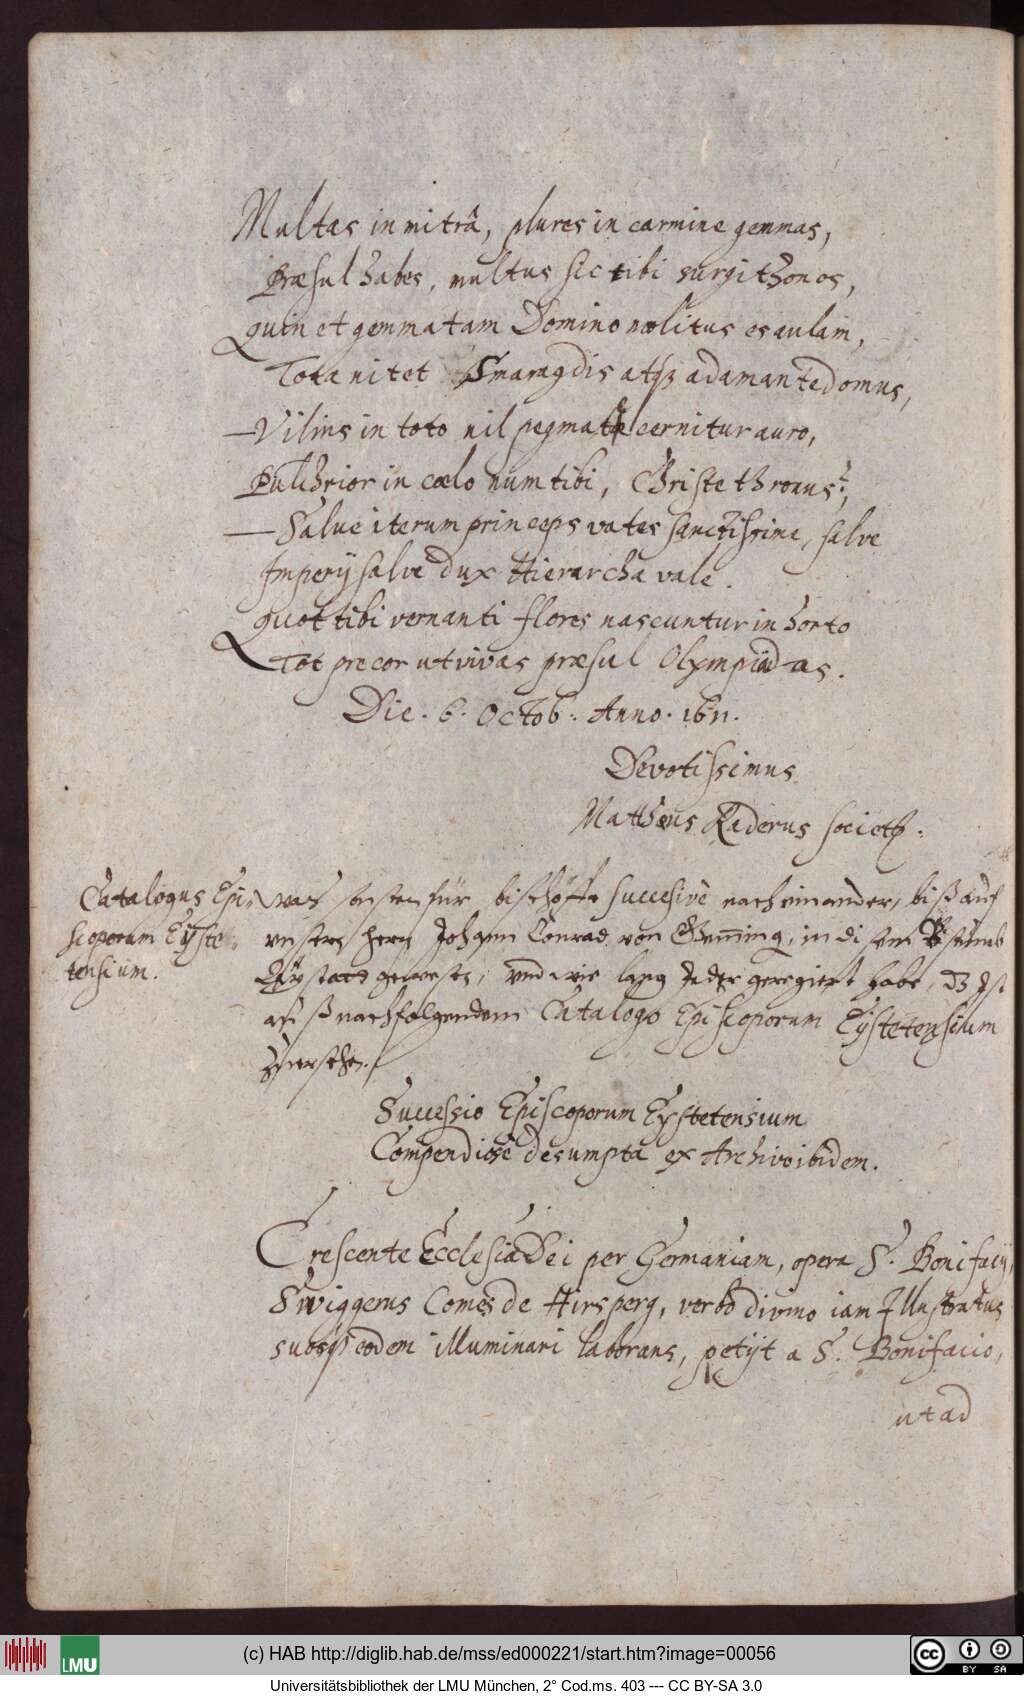 Multas in mitrâ, plures in carmine gemmas,
Præsul habes, multus sic tibi surgit honos,
quin et gemmatam Domino molitus es aulam,
Tota nitet Smaragdis atq3 adamante domus,
Vilius in toto nil pegmate cernitur auro,
Pulchrior in cœlo num tibi, Christe thronus?,
Salue iterum princeps vates sanctissime, salve
Imperij salve dux Hierarcha vale.
Quot tibi vernanti flores nascuntur in horto
Tot precor ut vivas præsul Olympiadas.
Die. 6. Octob: Anno. 1611.
Devotissimus
Matthæus Raderus societ:
Catalogus Epi-
scoporum Eyste-
tensium.
was sonsten für bischöffe succesivè nach einander, biß auf
unsern hern Johann Conrad von Gemming, in disem Bistumb
Eystatt gewesen, vnd wie lang Jeder geregiert habe, d3 Ist
auß nachfolgendem Catalogo Episcoporum Eystetensium
Zuersehen.
Successio Episcoporum Eystetensium
Compendiosè desumpta ex Archivo ibidem.
Crescente Ecclesia Dei per Germaniam, opera S. Bonifacij,
Swiggerus Comes de Hirsperg, verbo divino iam Illustratus
suosq3 eodem illuminari laborans, petijt a S. Bonifacio,
ut ad
(c) HAB http://diglib.hab.de/mss/ed000221/start.htm?image=00056
LMU
BY SA
Universitätsbibliothek der LMU München, 2° Cod.ms. 403 --- CC BY-SA 3.0